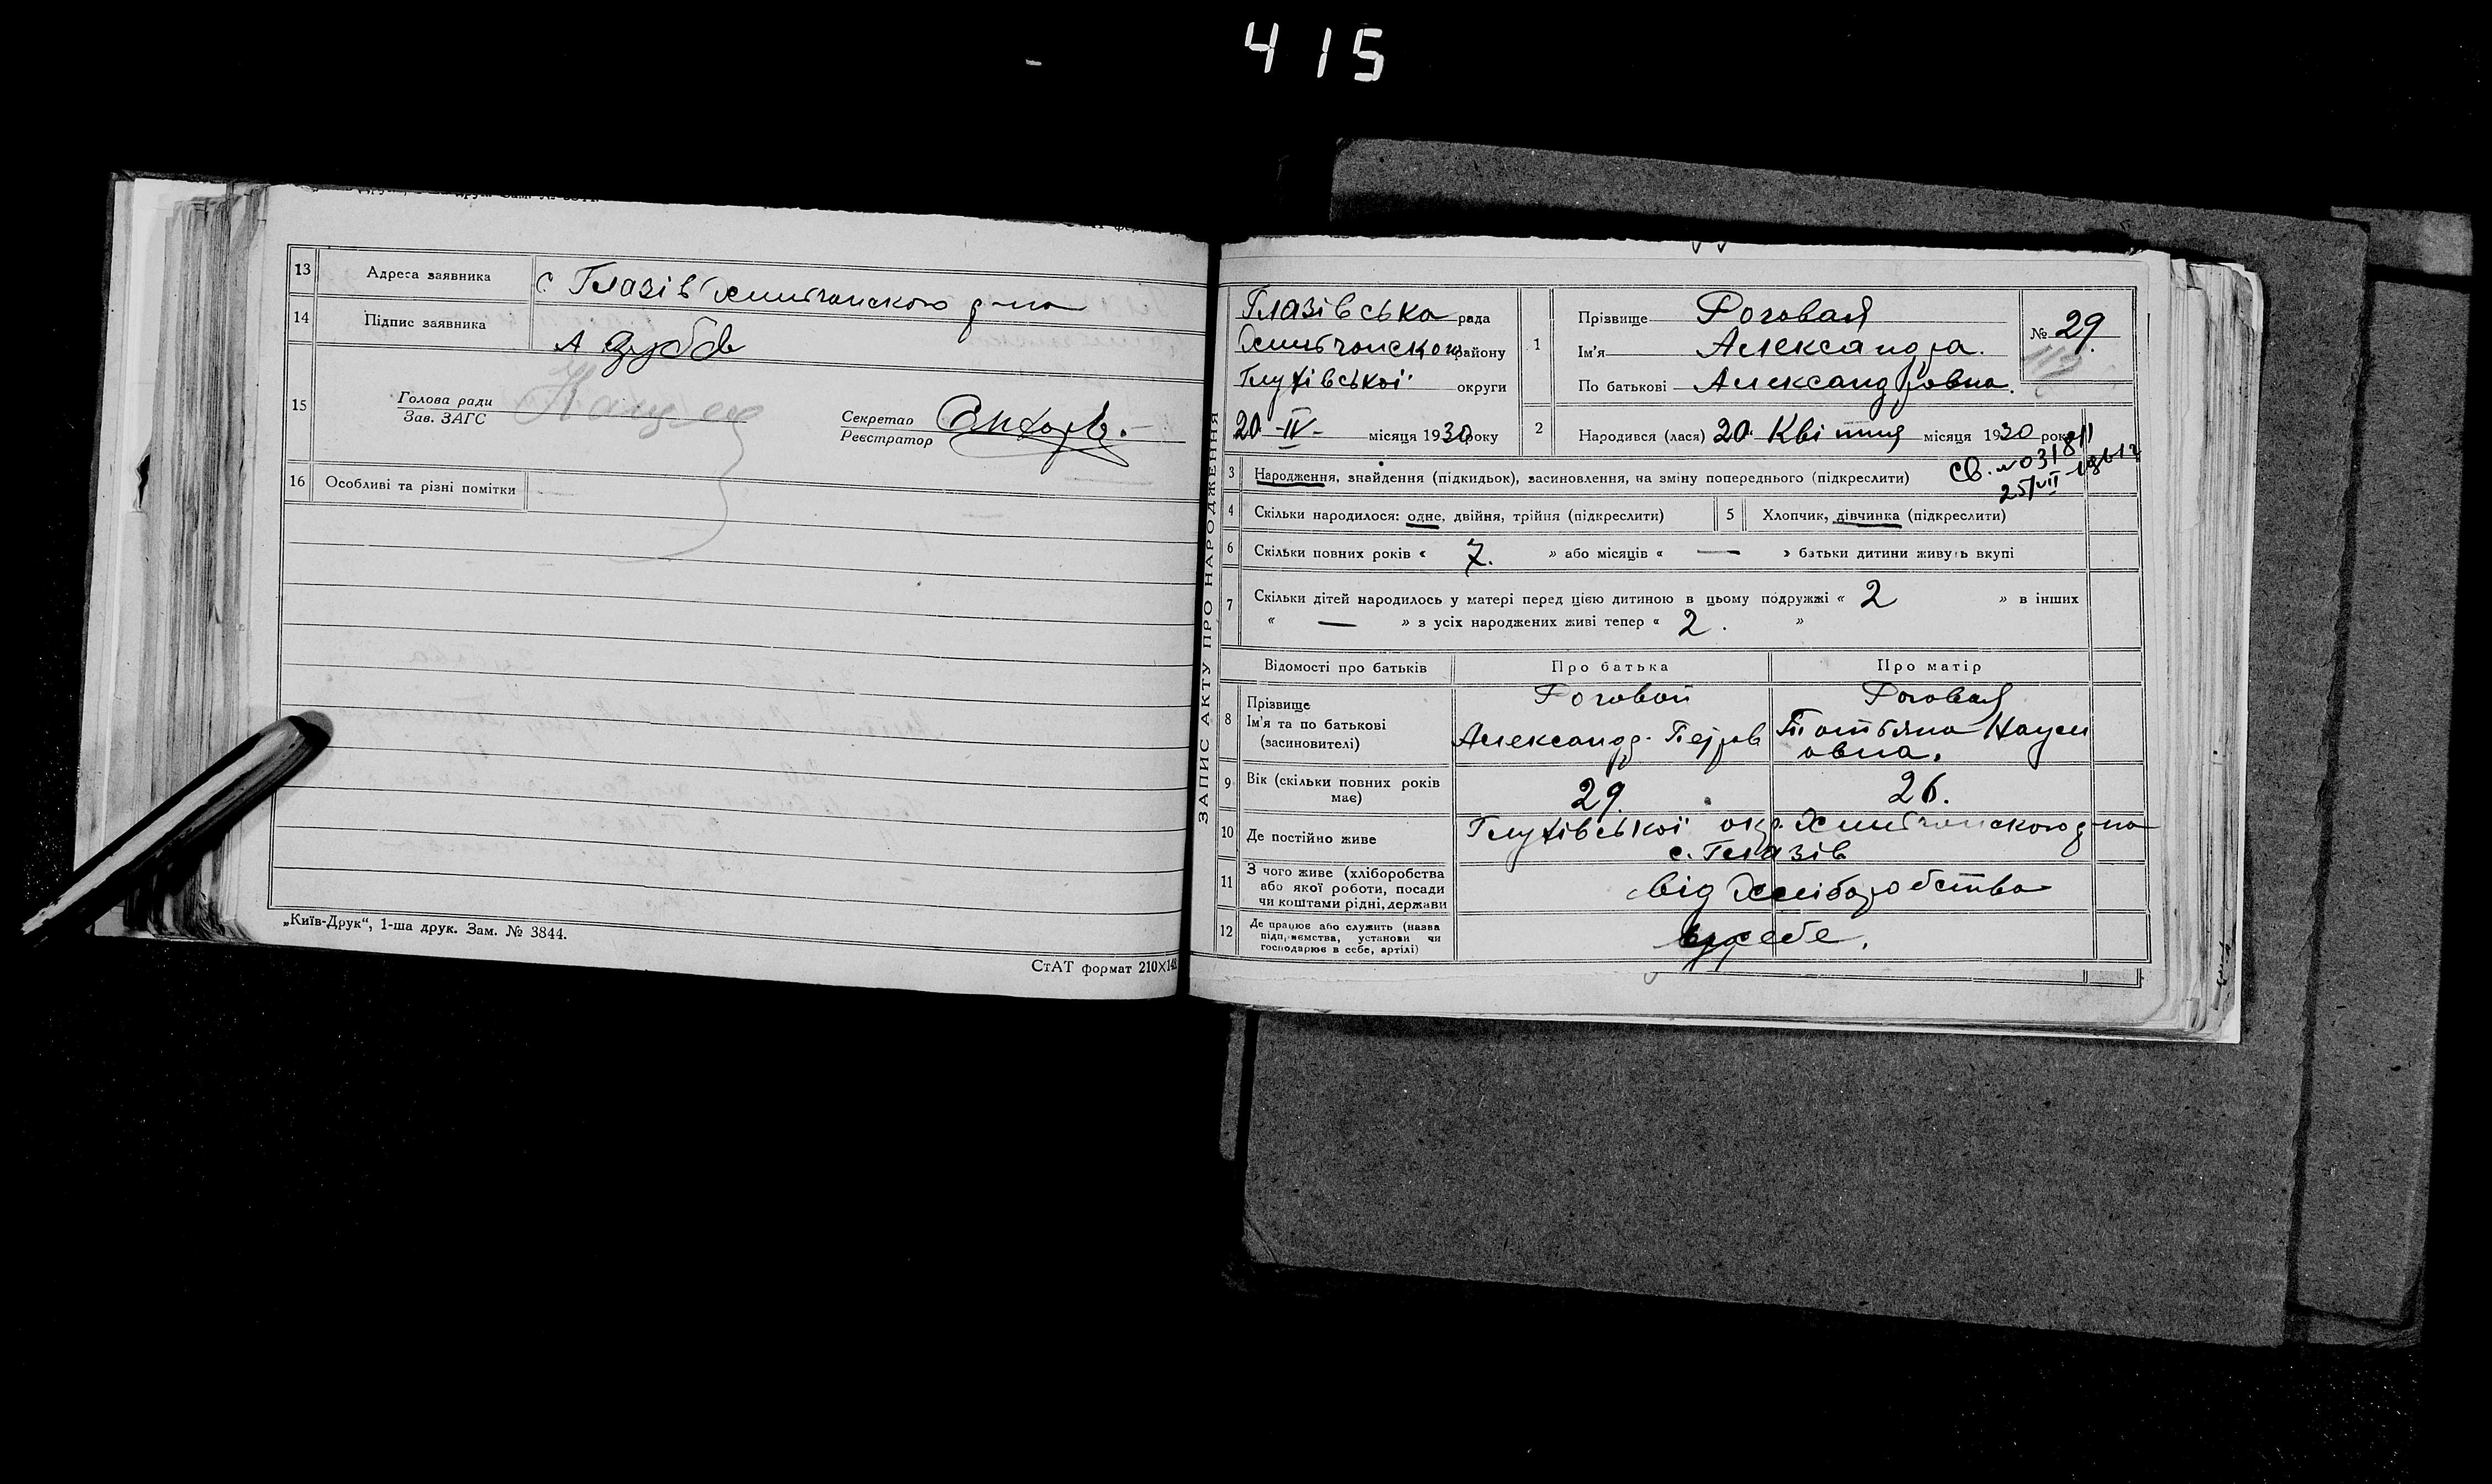 415
13 Адреса заявника с Глазів Хильчанского р-на
14 Підпис заявника
А Зуб
15 Голова ради
Зав. ЗАГС
Секретао
Реєстратор
16 Особливі та різні помітки —
„Київ-Друк“, 1-ша друк. Зам. № 3844.
СтАТ формат 210×148
ЗАПИС АКТУ ПРО НАРОДЖЕННЯ
Глазівська рада
Хильчанского району
Глухівської округи
20 -IV- місяця 1930 року
1 Прізвище Роговая
Ім'я Александра.
По батькові Александровна.
№ 29.
2 Народився (лася) 20 Квітня місяця 1930 року
3 Народження, знайдення (підкидьок), засиновлення, на зміну попереднього (підкреслити)
Св. №
25/VII
4 Скільки народилося: одне, двійня, трійня (підкреслити) 5 Хлопчик, дівчинка (підкреслити)
6 Скільки повних років « 7. » або місяців « — » батьки дитини живуть вкупі
7 Скільки дітей народилось у матері перед цією дитиною в цьому подружжі « 2 » в інших
« — » з усіх народжених живі тепер « 2. »
Відомості про батьків Про батька Про матір
8 Прізвище
Ім'я та по батькові
(засиновителі)
Роговой
Александр Петров
Роговая
Татьяна Наум
овна.
9 Вік (скільки повних років
має) 29. 26.
10 Де постійно живе Глухівської окр. Хильчанского р-на
с. Глазів
11 З чого живе (хліборобства
або якої роботи, посади
чи коштами рідні, держави
від Хліборобства
12 Де працює або служить (назва
підприємства, установи чи
господарює в себе, артілі)
себе.